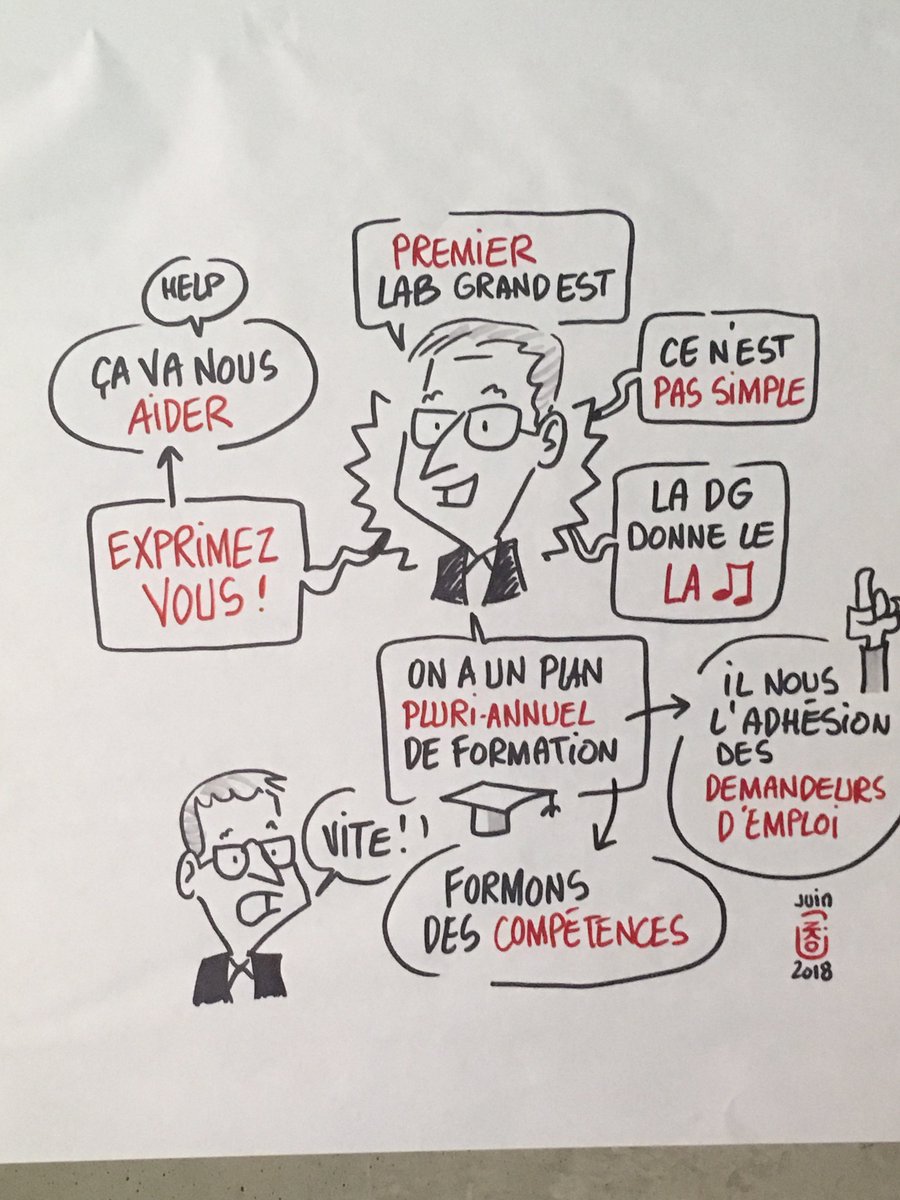 PREMIER
LAB GRAND EST
HELP
ÇA VA NOUS
AIDER
CE N'EST
PAS SIMPLE
EXPRIMEZ
VOUS !
LA DG
DONNE LE
LA
ON A UN PLAN
PLURI-ANNUEL
DE FORMATION
IL NOUS
L'ADHÉSION
DES
DEMANDEURS
D'EMPLOI
VITE !
FORMONS
DES COMPÉTENCES
juin
2018